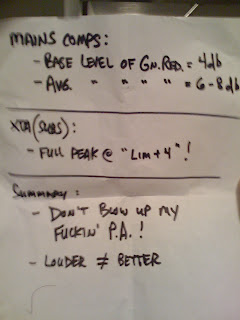 MAINS COMPS:
- BASE LEVEL OF GN. RED. = 4db
- AVG. " " " " = 6-8db
XTA (SUBS):
- FULL PEAK @ "LIM+4"!
SUMMARY:
- DON'T BLOW UP MY
FUCKIN' P.A.!
- LOUDER ≠ BETTER